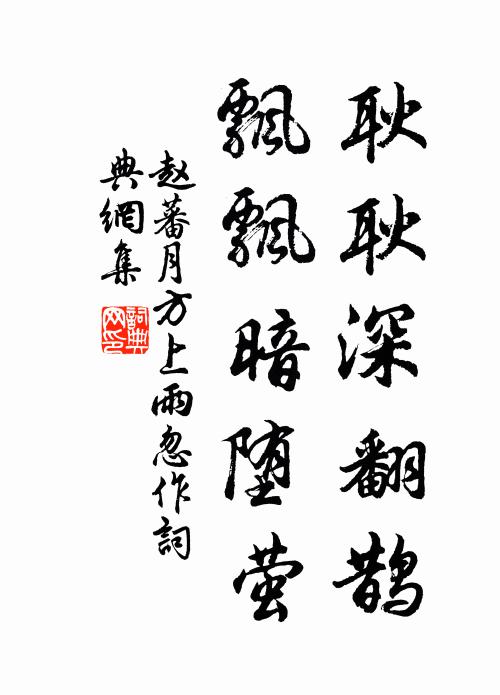 耿耿深翻鹊
飘飘暗堕萤
赵蕃月方上雨忽作詞
典網集
詞典网印